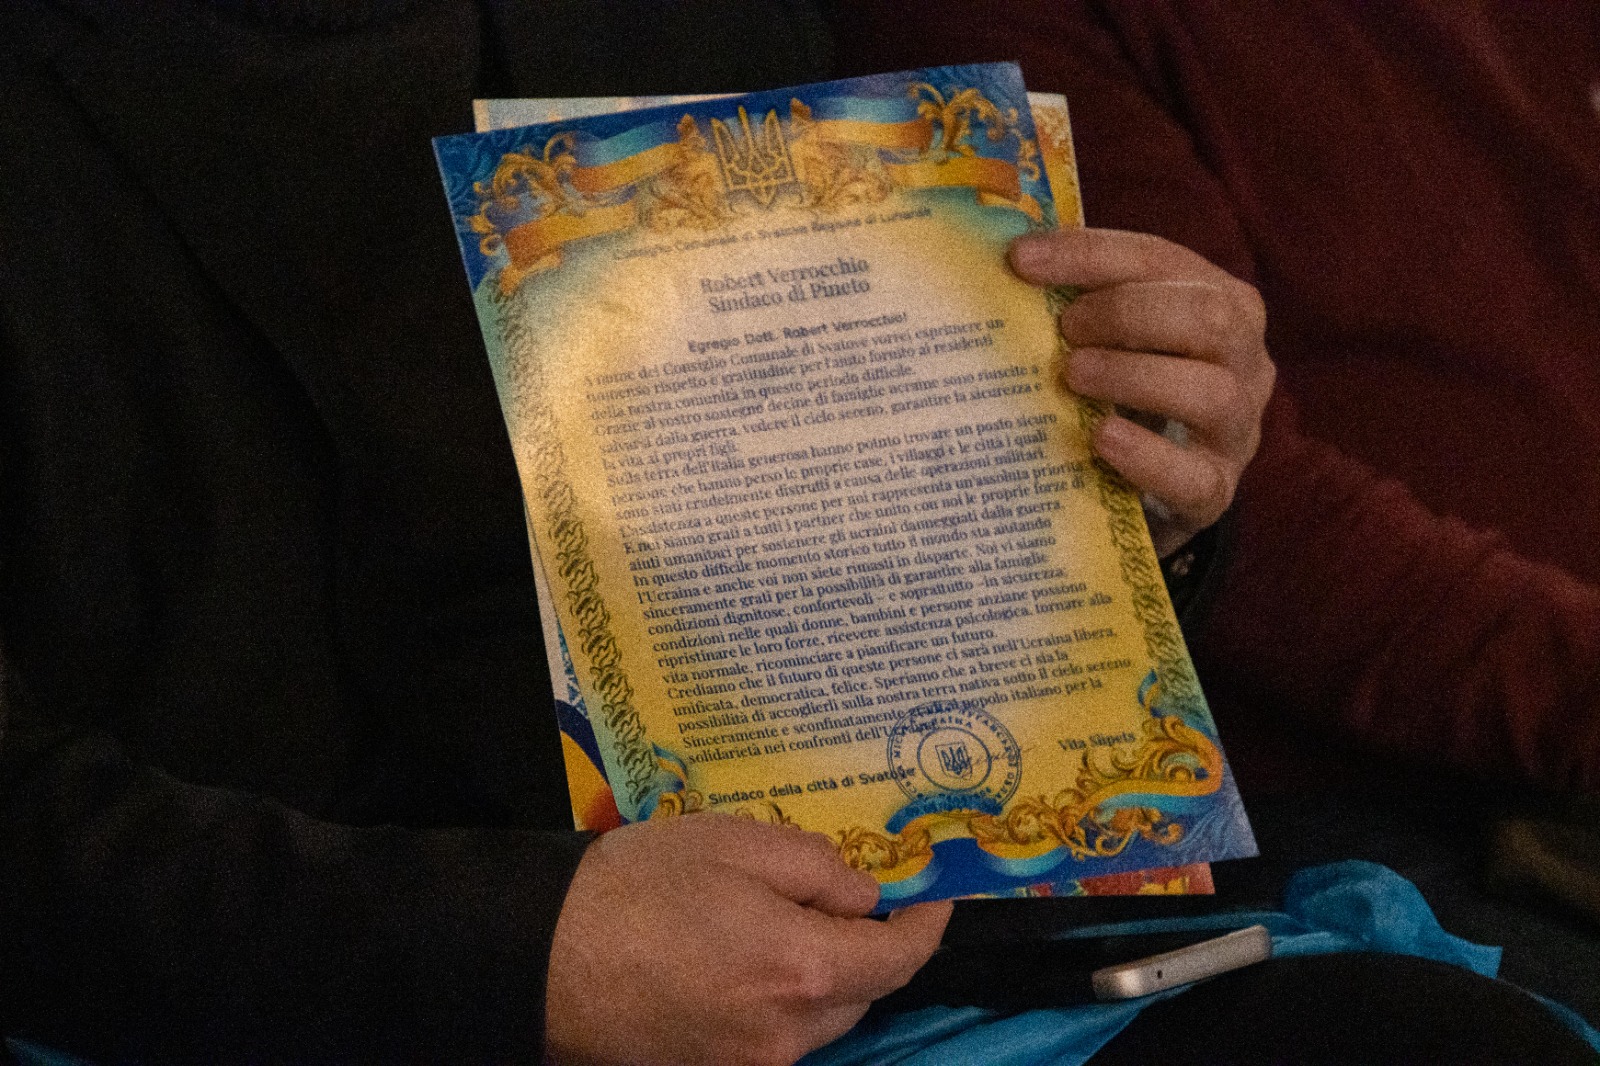 Consiglio Comunale di Svatove Regione di Luhansk
Robert Verrocchio
Sindaco di Pineto
Egregio Dott. Robert Verrocchio!
A nome del Consiglio Comunale di Svatove vorrei esprimere un
immenso rispetto e gratitudine per l'aiuto fornito ai residenti
della nostra comunità in questo periodo difficile.
Grazie al vostro sostegno decine di famiglie ucraine sono riuscite a
salvarsi dalla guerra, vedere il cielo sereno, garantire la sicurezza e
la vita ai propri figli.
Sulla terra dell'Italia generosa hanno potuto trovare un posto sicuro
persone che hanno perso le proprie case, i villaggi e le città i quali
sono stati crudelmente distrutti a causa delle operazioni militari.
L'assistenza a queste persone per noi rappresenta un'assoluta priorità
E noi siamo grati a tutti i partner che unito con noi le proprie forze di
aiuti umanitari per sostenere gli ucraini danneggiati dalla guerra.
In questo difficile momento storico tutto il mondo sta aiutando
l'Ucraina e anche voi non siete rimasti in disparte. Noi vi siamo
sinceramente grati per la possibilità di garantire alla famiglie
condizioni dignitose, confortevoli – e soprattutto –in sicurezza,
condizioni nelle quali donne, bambini e persone anziane possono
ripristinare le loro forze, ricevere assistenza psicologica, tornare alla
vita normale, ricominciare a pianificare un futuro.
Crediamo che il futuro di queste persone ci sarà nell'Ucraina libera,
unificata, democratica, felice. Speriamo che a breve ci sia la
possibilità di accoglierli sulla nostra terra nativa sotto il cielo sereno
Sinceramente e sconfinatamente grati al popolo italiano per la
solidarietà nei confronti dell'Ucraina
Sindaco della città di Svatove
Vita Slipets